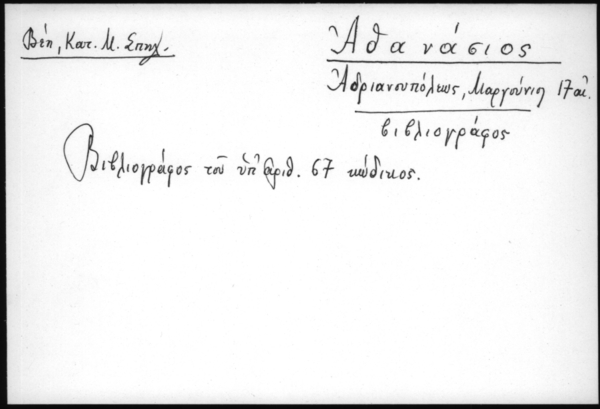 Βέη, Κατ. Μ. Σπηλ.
Ἀθανάσιος
Ἀδριανουπόλεως, Μαργούνιος 17 αἰ.
βιβλιογράφος
Βιβλιογράφος τοῦ ὑπ' ἀριθ. 67 κώδικος.